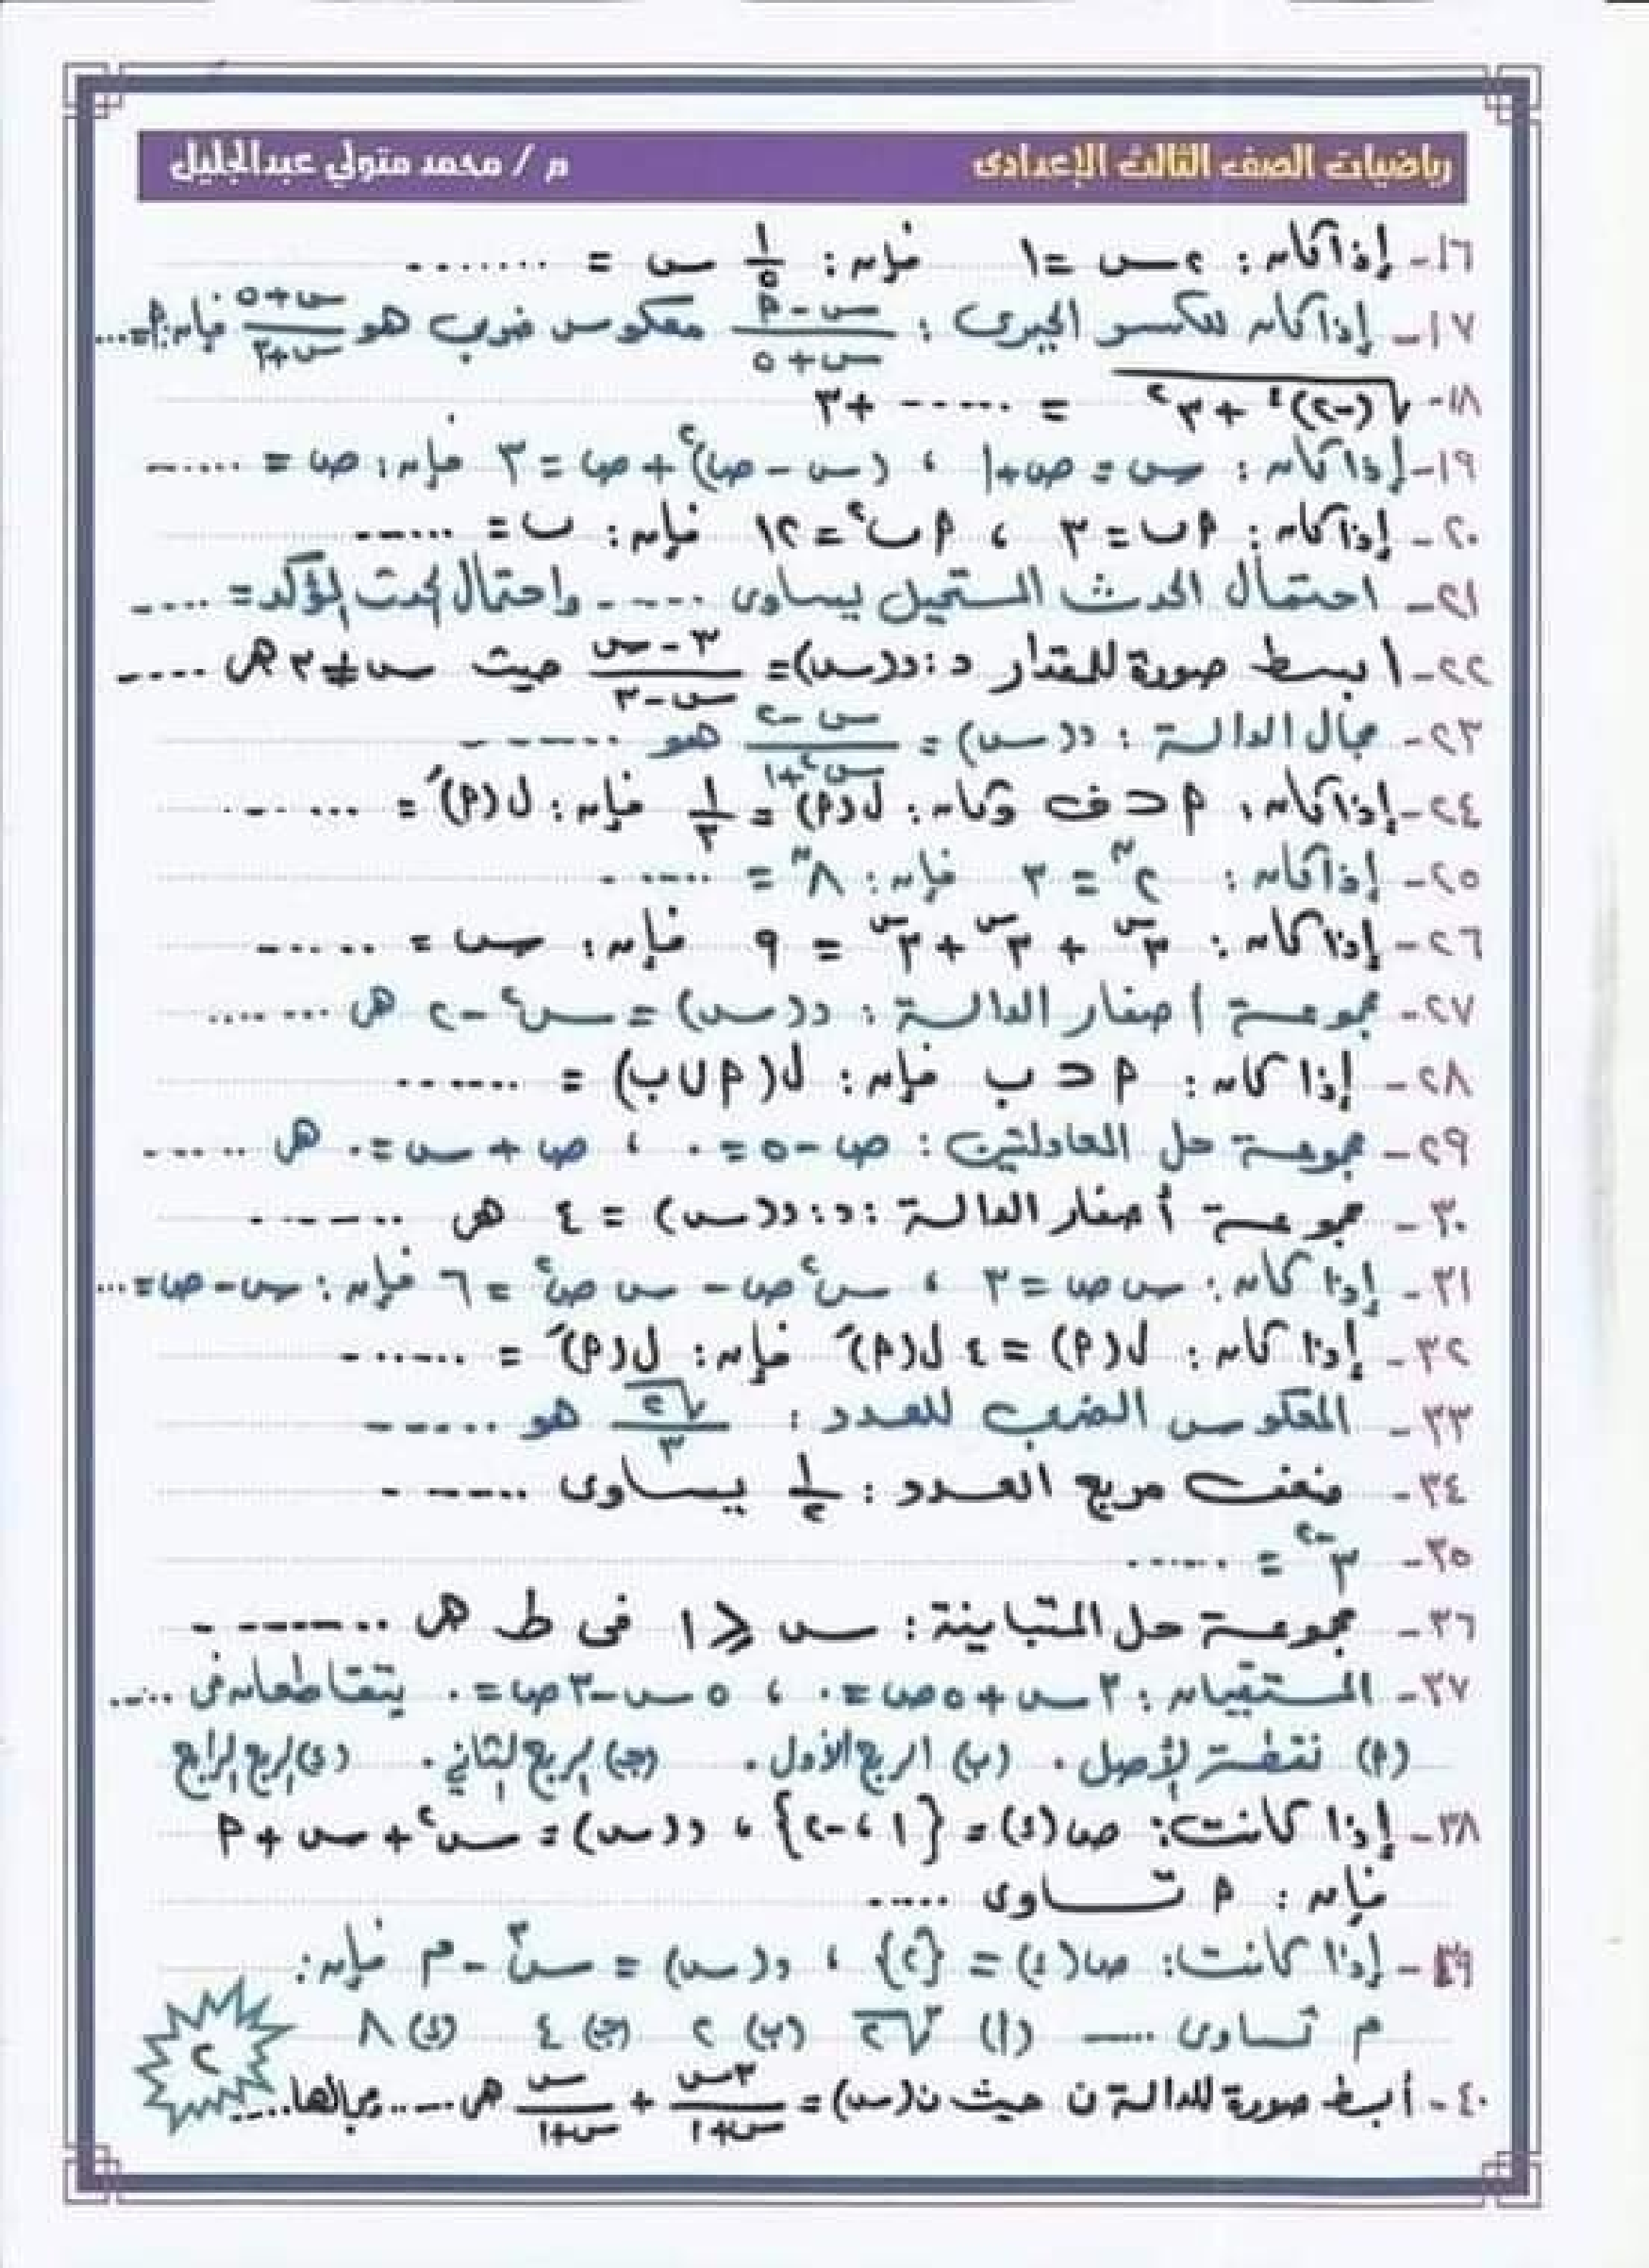 رياضيات الصف الثالث الإعدادى م / محمد متولي عبدالجليل
١٦- إذا كان: ٢ س = ١ فإن: ١/٥ س = .......
١٧- إذا كان للكسر الجبرى: (س - م)/(س + ٥) معكوس ضربى هو (س + ٥)/(س + ٣) فإن: م = ...
١٨- √((-٢)⁴ + ٣²) = ...... + ٣
١٩- إذا كان: س = ص + ١ ، (س - ص)² + ص = ٣ فإن: ص = ......
٢٠- إذا كان: م ب = ٣ ، م ب² = ١٢ فإن: ب = ......
٢١- احتمال الحدث المستحيل يساوى ...... واحتمال الحدث المؤكد = ....
٢٢- ابسط صورة للمقدار د: د(س) = (٣ - س)/(س - ٣) حيث س ≠ ٣ هى ....
٢٣- مجال الدالة: د(س) = (س - ٢)/(س² + ١) هو ......
٢٤- إذا كان: م ⊂ ف وكان: ل(م) = ١/٣ فإن: ل(م)َ = ......
٢٥- إذا كان: ٢ⁿ = ٣ فإن: ٨ⁿ = ......
٢٦- إذا كان: ٣^س + ٣^س + ٣^س = ٩ فإن: س = ......
٢٧- مجموعة أصفار الدالة: د(س) = س² - ٢ هى .......
٢٨- إذا كان: م ⊂ ب فإن: ل(م ∪ ب) = ......
٢٩- مجموعة حل المعادلتين: ص - ٥ = ٠ ، ص + س = ٠ هى ......
٣٠- مجموعة أصفار الدالة: د: د(س) = ٤ هى ......
٣١- إذا كان: س ص = ٣ ، س² ص - س ص² = ٦ فإن: س - ص = ...
٣٢- إذا كان: ل(م) = ٤ ل(م)َ فإن: ل(م)َ = ......
٣٣- المعكوس الضربى للعدد: √٢/٣ هو ......
٣٤- ضعف مربع العدد: ١/٢ يساوى ......
٣٥- ٣^-٢ = ......
٣٦- مجموعة حل المتباينة: س ⩽ ١ فى ط هى ........
٣٧- المستقيمان: ٣ س + ٥ ص = ٠ ، ٥ س - ٣ ص = ٠ يتقاطعان فى ....
(م) نقطة الأصل. (ب) الربع الأول. (ج) الربع الثاني. (د) الربع الرابع
٣٨- إذا كانت: ص(د) = {١ ، -٢} ، د(س) = س² + س + م
فإن: م تساوى .....
٣٩- إذا كانت: ص(د) = {٢} ، د(س) = س³ - م فإن:
م تساوى ..... (أ) ³√٢ (ب) ٢ (ج) ٤ (د) ٨
٤٠- أبسط صورة للدالة ن حيث ن(س) = ٣س/(س + ١) + س/(س + ١) هى ..... مجالها ....
٢